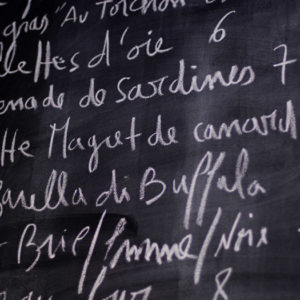 gras "Au Torchon
llettes d'oie 6
enade de Sardines 7
tte Magret de canard
zarella di Buffala
Brie/Pomme/Noix
8